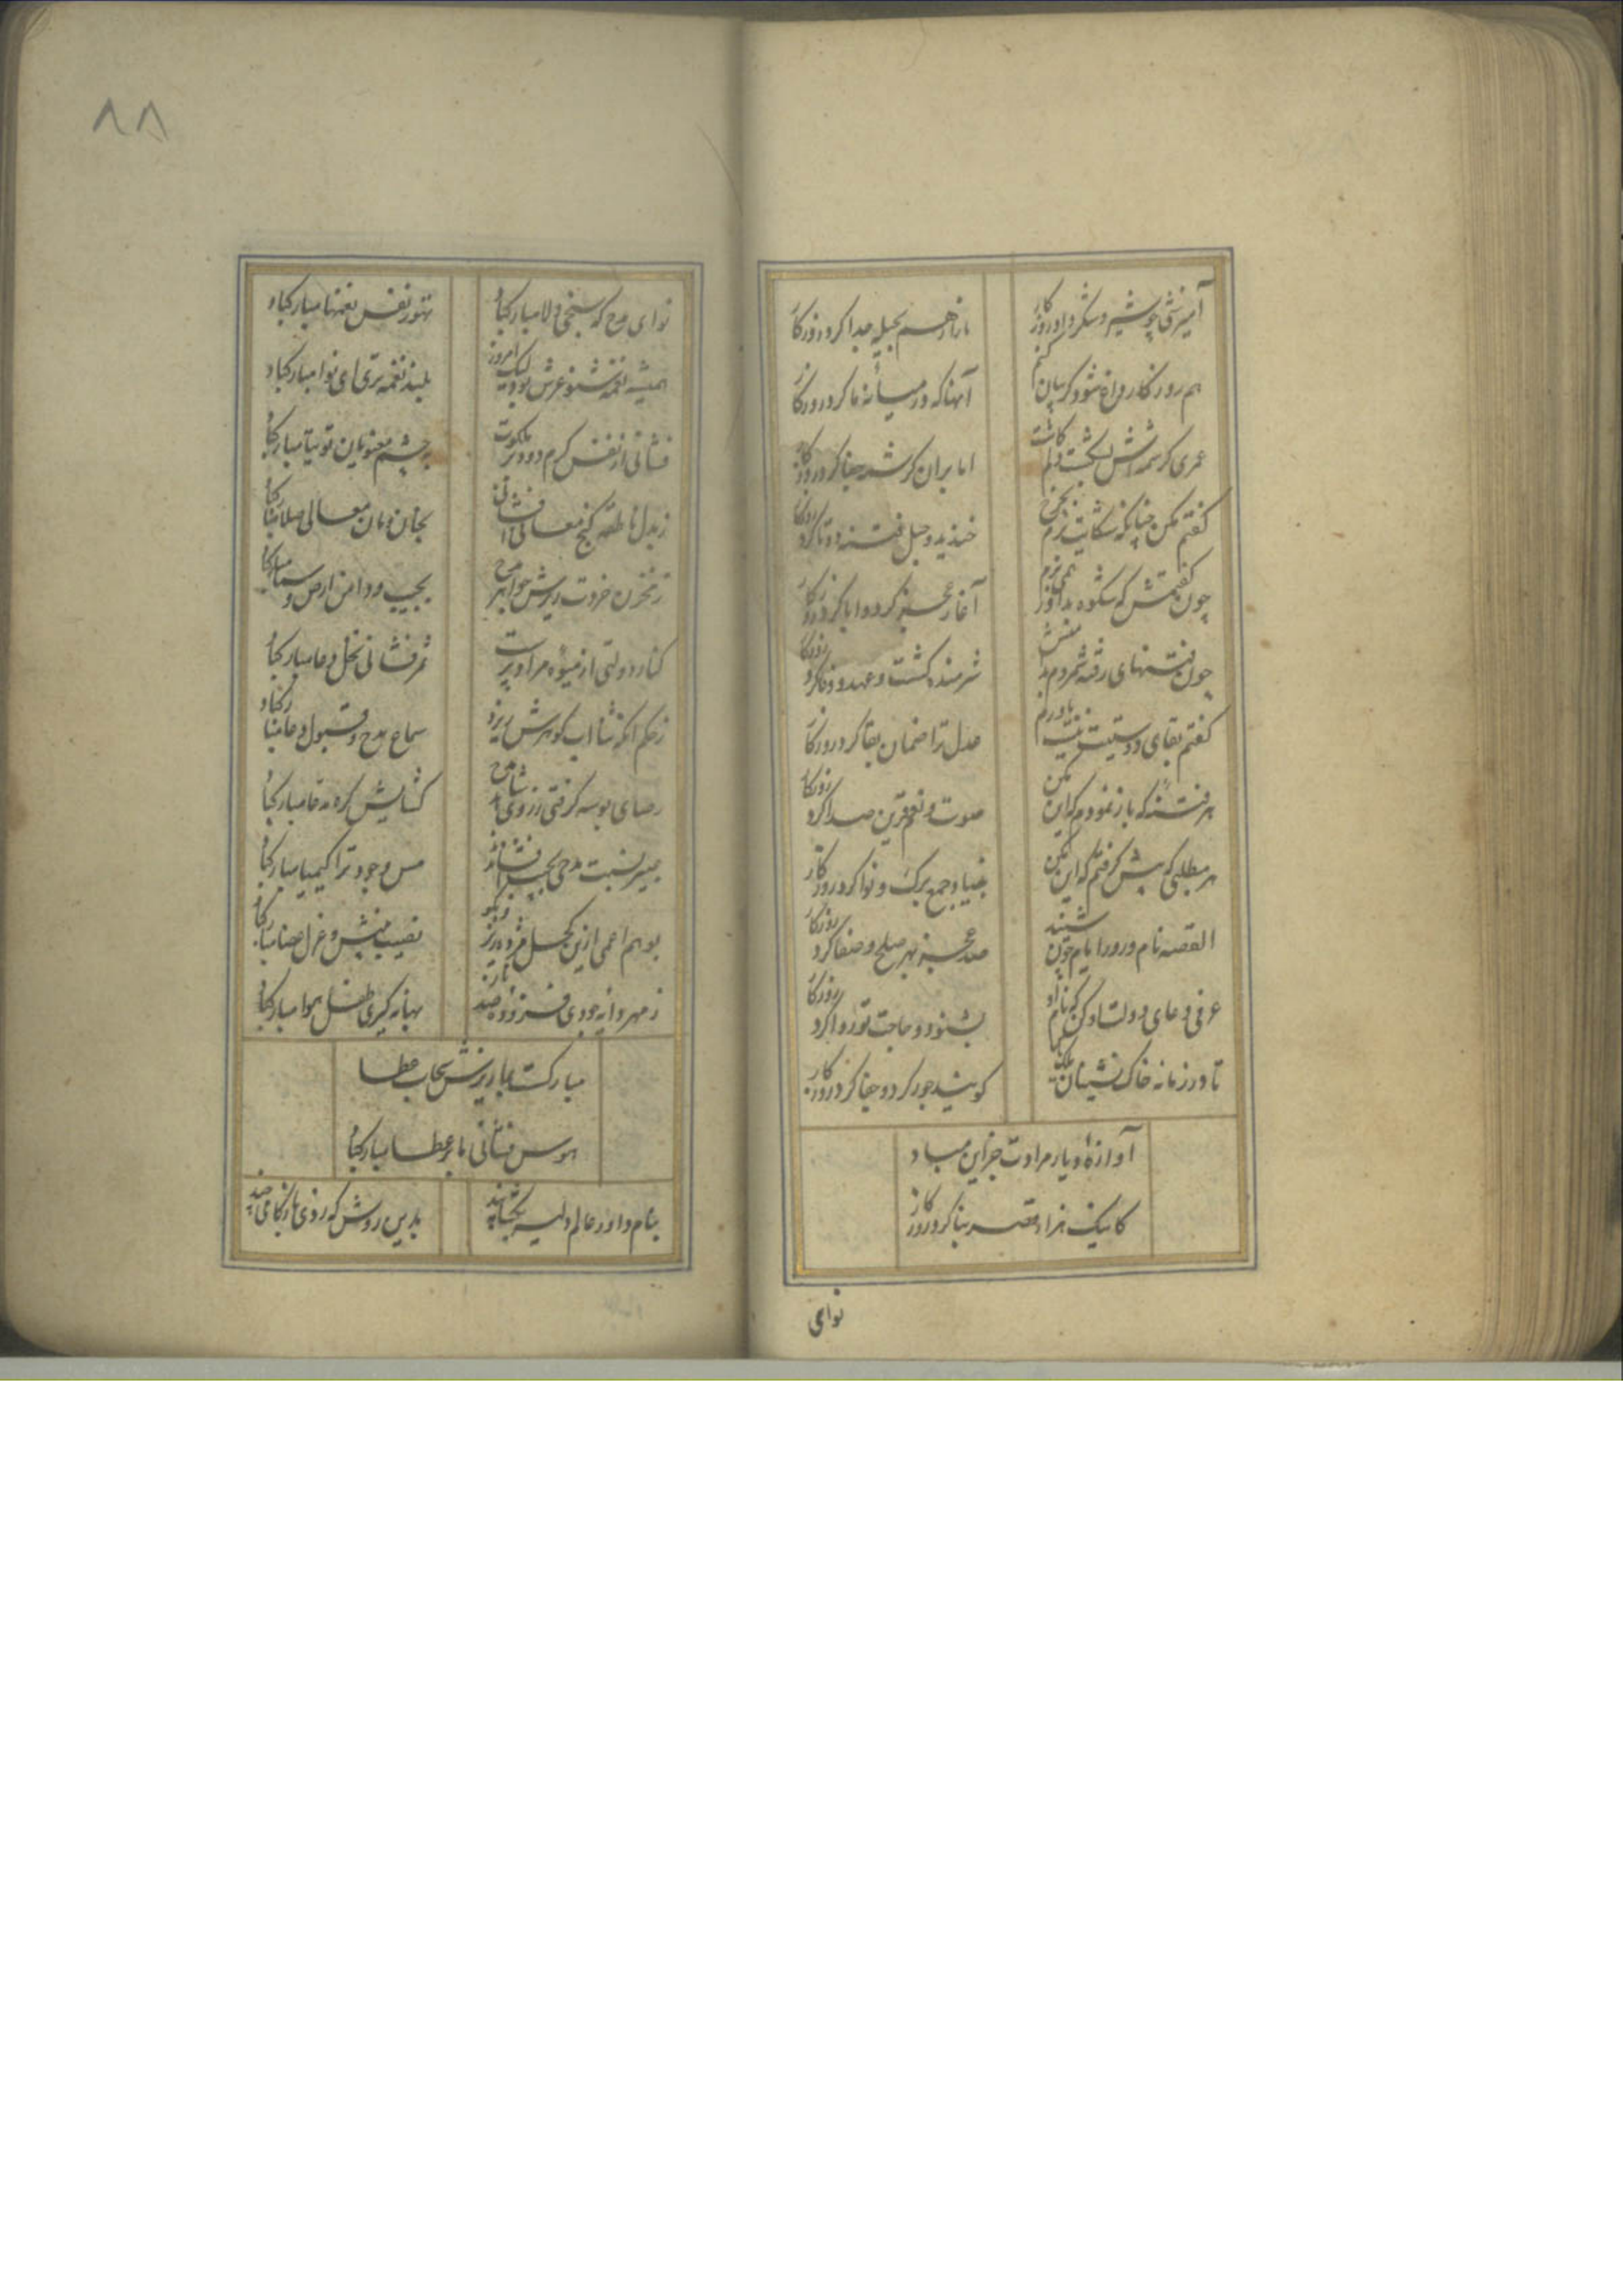 آمیزشی چو شیر و شکر داد روزگار
ما را ز هم بحیله جدا کرد روزگار
هم روزگار واه شود گر بیان کنم
آنها که در میانه ما کرد روزگار
عمری کرشمه‌اش بدلم کاشت
اما بران کرشمه جفا کرد روزگار
گفتم مکن چنانکه شکایت برم بچرخ
خندید و حبل فتنه دوتا کرد روزگار
چون گفتمش که شکوه بداور همی برم
آغاز عجز کرد و ابا کرد روزگار
چون فتنهای رفته شمردم بر منش
شرمنده گشت و عهد و وفا کرد روزگار
گفتم بقای دوستیت نیست باورم
عدل ترا ضمان بقا کرد روزگار
هر فتنه که باز نمودم که این مکن
صوت و نعم قرین صدا کرد روزگار
هر مطلبی که پیش گرفتم که این بکن
بنیاد جمع برگ و نوا کرد روزگار
القصه نام داور ایام چون شنید
صد عجز بهر صلح و صفا کرد روزگار
عرفی دعای دولت او کن که نام او
بشنود و حاجت تو روا کرد روزگار
تا در زمانه خاک نشینان
گویند جور کرد و جفا کرد روزگار
آوازهٔ دیار مرادت جز این مباد
کاینک هزار قصر بنا کرد روزگار
نوای
٨٨
نوای مدح که سنجی دلا مبارکباد
نفس نغمها مبارکباد
همیشه نغمه شنو عرش بود لیک امروز
بلند نغمه تری ای نوا مبارکباد
فشانی از نفس گرم دود بر ملکوت
بچشم معنویان توتیا مبارکباد
ز بدل ناطقه گنج معالی افشانی
بجان و مان معالی صلا مبارکباد
ز مخزن خردت ریزش جواهر مدح
بجیب و دامن ارض و سما مبارکباد
کنار دولتی از میوه مراد پرست
ثمر فشانی نخل دعا مبارکباد
ز حکم آنکه شا آب گوهرش ریزد
سماع مدح و قبول دعا مبارکباد
رضای بوسه گرفتی ز روی شاهد مدح
گشایش گره مدعا مبارکباد
بجیب افشاند
مس وجود ترا کیمیا مبارکباد
بوهم اعمی ازین کحل مژده ریز و بگو
نصیب بینش و عزل عصا مبارکباد
بهانه گیری طفل هوا مبارکباد
مبارکست بما ریزش سحاب عطا
هوس فشانی ما بر عطا مبارکباد
بنام داور عالم دلیر بخشایند
بدین روش که روی